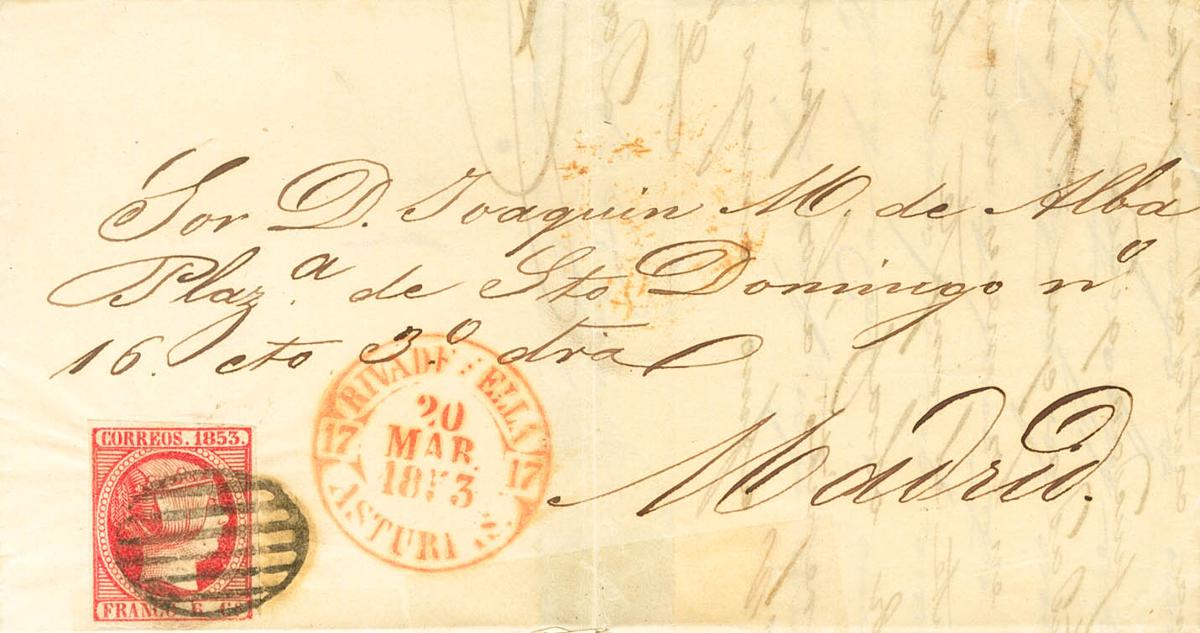 Sor D. Joaquin M. de Alba
Plaz.ª de Sto Domingo nº
16. cto. 3.º dra
Madrid.
RIVADE ELLA
17 17
20
MAR.
1853
ASTURI S.
CORREOS. 1853.
FRANCO 6. Cs